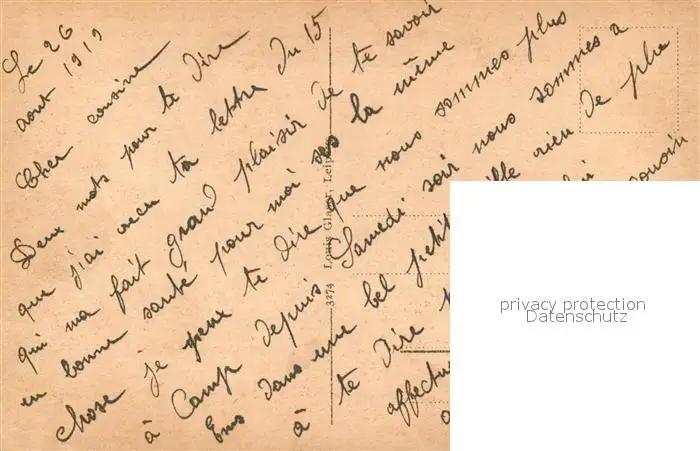 Le 26
aout 1919
Cher cousine
Deux mots pour te dire
que j'ai recu ta lettre du 15
qui ma fait grand plaisir de te savoir
en bonne santé pour moi la même
chose je peux te dire que nous sommes plus
à Camp depuis Samedi soir nous sommes a
Ems dans une bel petit ille rien de plu
à te dire
cousin
affectu
3274 Louis Glaser, Leipzig
privacy protection
Datenschutz